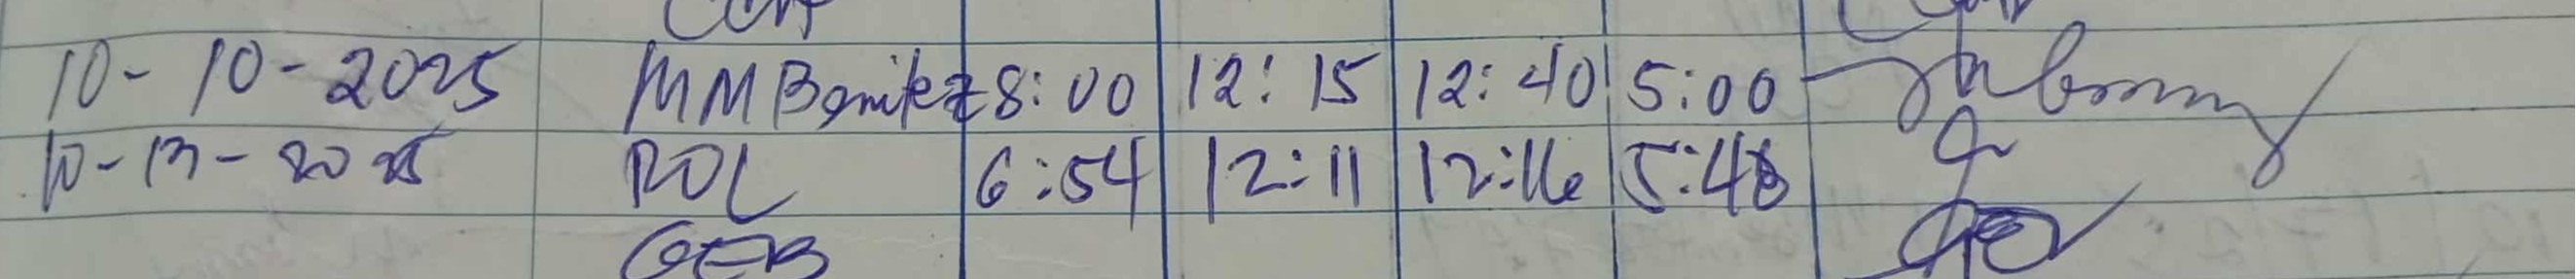 10-10-2025 MM Benitez 8:00 12:15 12:40 5:00
10-13-2025 RDL 6:54 12:11 12:16 5:48
GEB